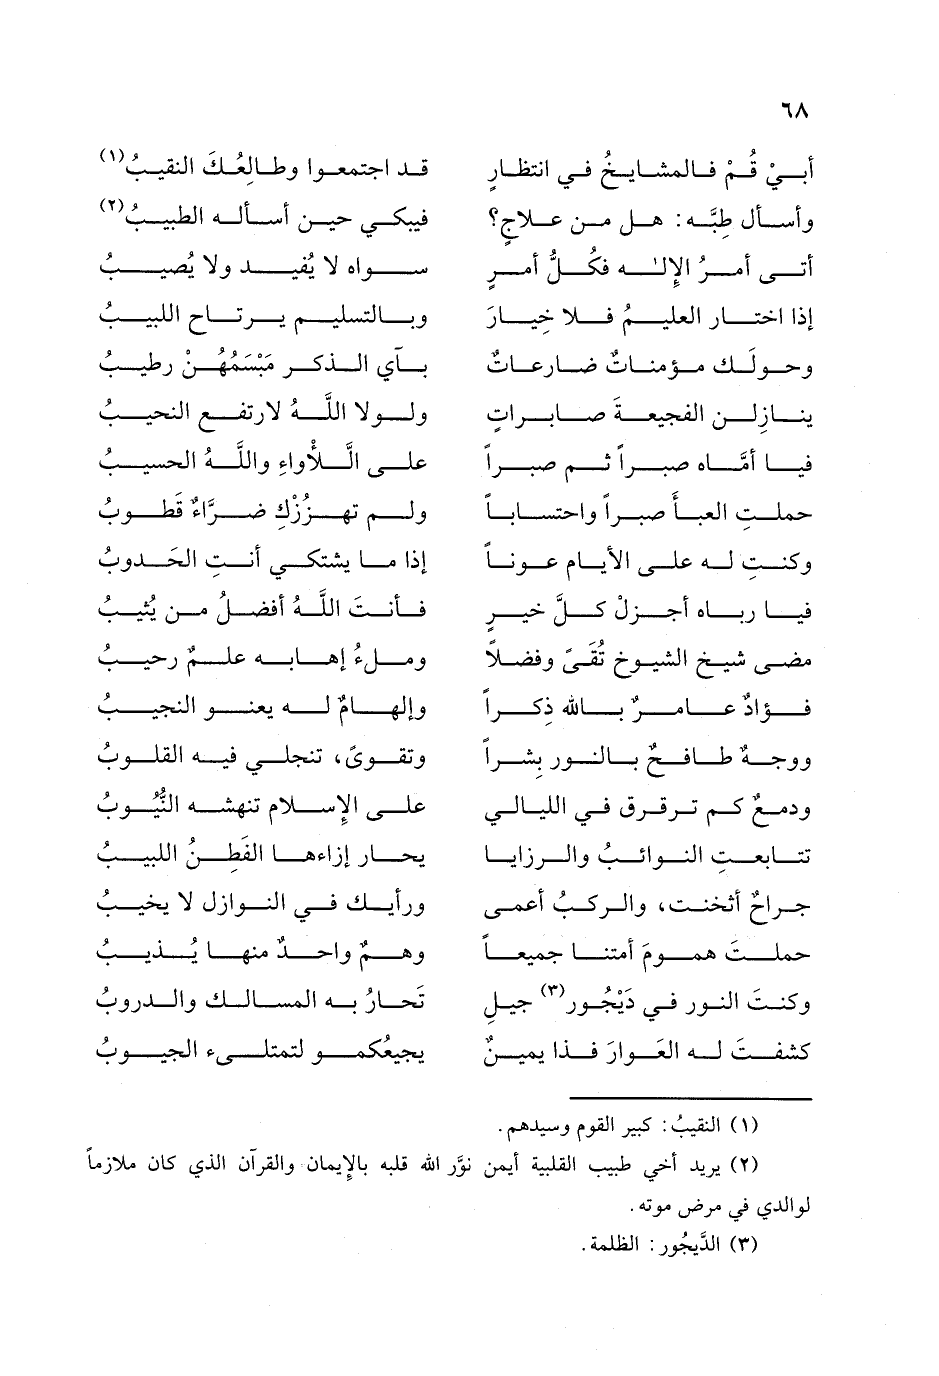 ٦٨
أبيْ قُمْ فالمشايخُ في انتظارٍ قد اجتمعوا وطالعُكَ النقيبُ(١)
وأسأل طبَّه: هل من علاجٍ؟ فيبكي حين أسأله الطبيبُ(٢)
أتى أمرُ الإلٰه فكلُّ أمرٍ سواه لا يُفيد ولا يُصيبُ
إذا اختار العليمُ فلا خيارَ وبالتسليم يرتاح اللبيبُ
وحولَك مؤمناتٌ ضارعاتٌ بآي الذكر مَنْهَمُهُنْ رطيبُ
ينازلن الفجيعةَ صابراتٍ ولولا اللَّهُ لارتفع النحيبُ
فيا أمّاه صبراً ثم صبراً على الَّلأواء واللَّهُ الحسيبُ
حملتِ العبأَ صبراً واحتساباً ولم تهزُزْكِ ضرَّاءٌ قَطوبُ
وكنتِ له على الأيام عوناً إذا ما يشتكي أنتِ الحَدوبُ
فيا رباه أجزلْ كلَّ خيرٍ فأنت اللَّهُ أفضلُ من يُثيبُ
مضى شيخ الشيوخِ تُقىً وفضلاً وملءُ إهابه علمٌ رحيبُ
فؤادٌ عامرٌ بالله ذكراً وإلهامٌ له يعنو النجيبُ
ووجهٌ طافحٌ بالنور بشراً وتقوىً، تنجلي فيه القلوبُ
ودمعٌ كم ترقرق في الليالي على الإسلام تنهشه النُّيوبُ
تتابعتِ النوائبُ والرزايا يحار إزاءها الفَطِنُ اللبيبُ
جراحٌ أثخنت، والركبُ أعمى ورأيك في النوازل لا يخيبُ
حملتَ همومَ أمتنا جميعاً وهمٌّ واحدٌ منها يُذيبُ
وكنتَ النور في دَيْجُور(٣) جيلٍ تَحارُ به المسالك والدروبُ
كشفتَ له العَوارَ فذا يمينٌ يجيئكمو لتمتلىء الجيوبُ
(١) النقيبُ: كبير القوم وسيدهم.
(٢) يريد أخي طبيب القلبية أيمن نوَّر الله قلبه بالإيمان والقرآن الذي كان ملازماً
لوالدي في مرض موته.
(٣) الدَّيجُور: الظلمة.